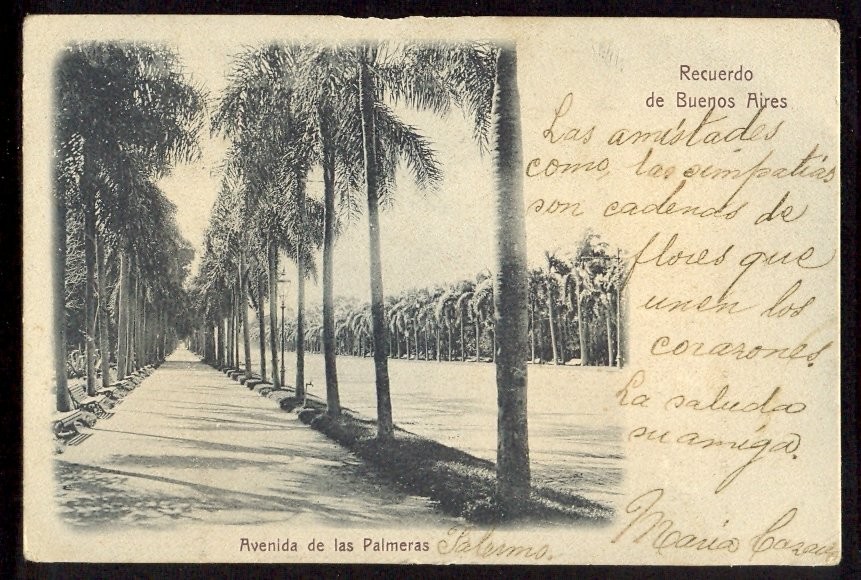 Recuerdo
de Buenos Aires
Las amistades
como, las simpatías
son cadenas de
flores que
unen los
corazones.
La saluda
su amiga.
María
Avenida de las Palmeras Palermo.